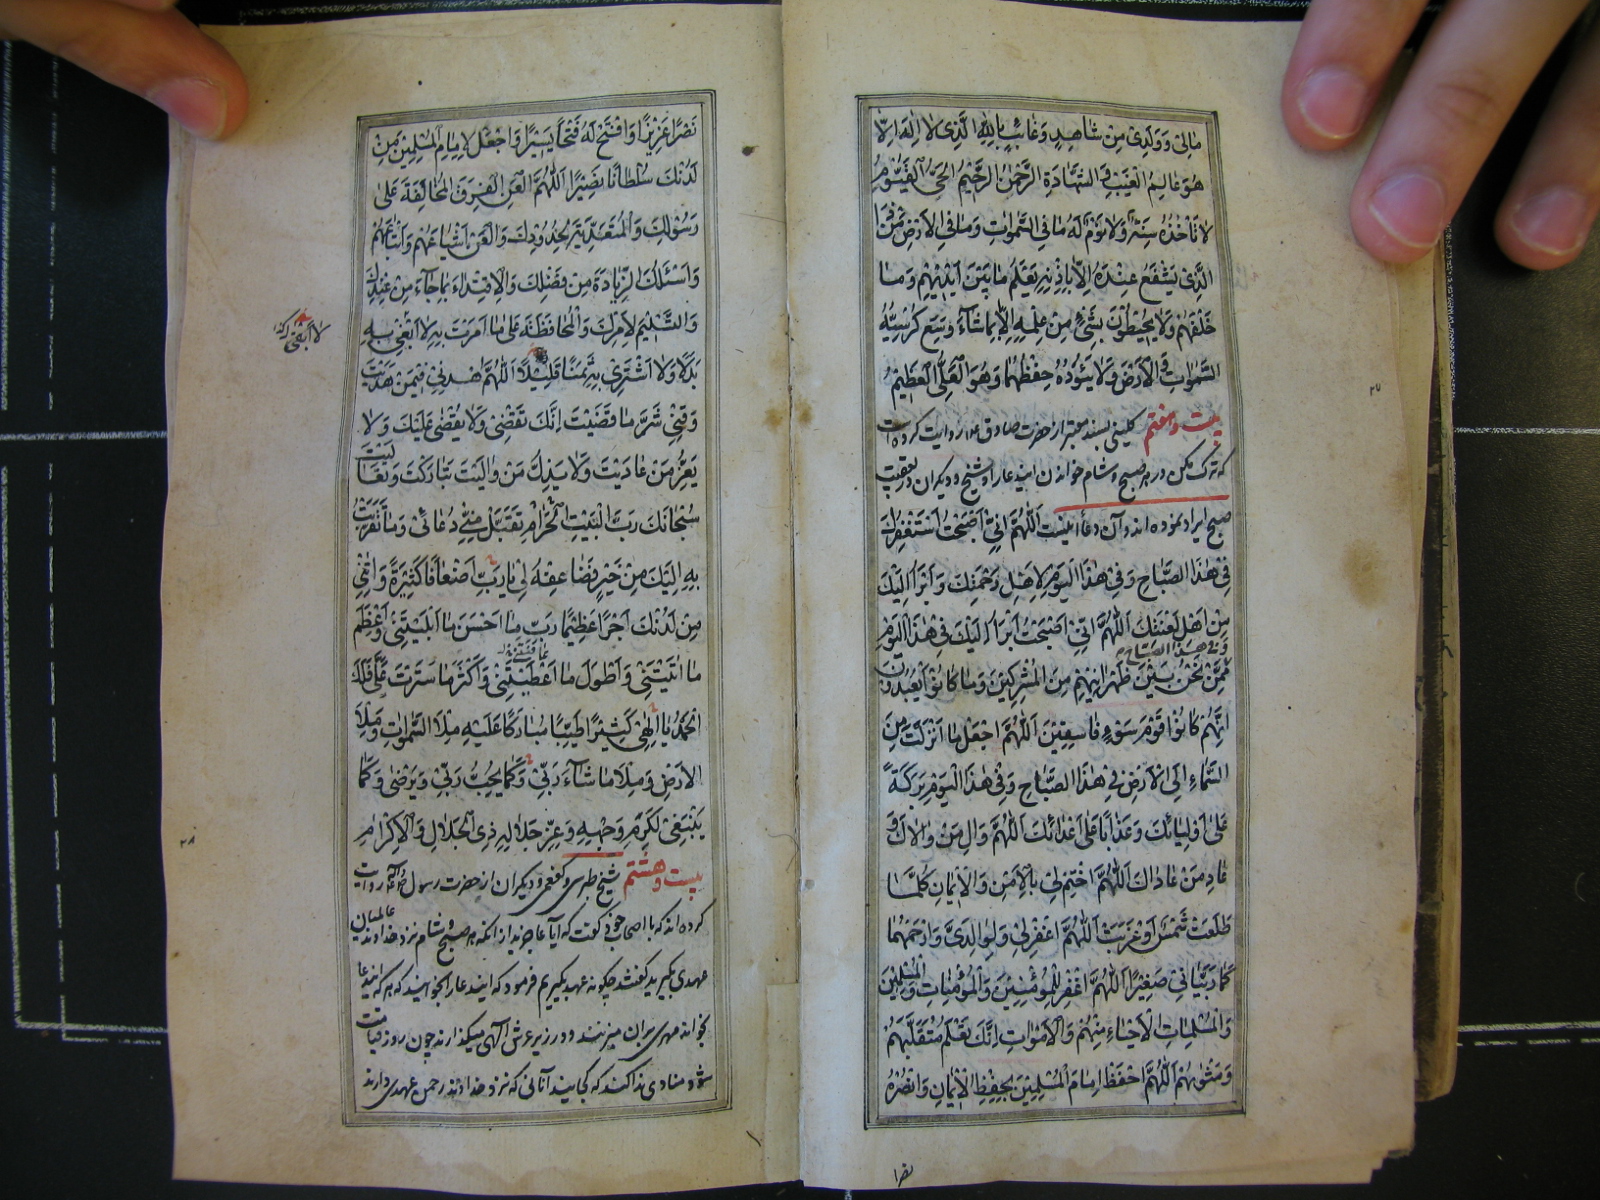 مالی وولدی من شاهد وغائب بالله الذی لا اله الا
هو عالم الغیب والشهادة الرحمن الرحیم الحی القیوم
لا تأخذه سنة ولا نوم له ما فی السموات وما فی الارض من ذا
الذی یشفع عنده الا باذنه یعلم ما بین ایدیهم وما
خلفهم ولا یحیطون بشیء من علمه الا بما شاء وسع کرسیه
السموات والارض ولا یؤده حفظهما وهو العلی العظیم
بیست وهفتم کلینی بسند معتبر از حضرت صادق ع روایت کرده است
که ترک مکن در هر صبح وشام خواندن این دعا را وشیخ ودیگران در تعقیب
صبح ایراد نموده اند وآن دعا اینست اللهم انی اصبحت استغفرک
فی هذا الصباح وفی هذا الیوم لاهل رحمتک وابرأ الیک
من اهل لعنتک اللهم انی اصبحت ابرأ الیک فی هذا الیوم
وفی هذا الصباح
ممن نحن بین ظهرانیهم من المشرکین وما کانوا یعبدون
انهم کانوا قوم سوء فاسقین اللهم اجعل ما انزلت من
السماء الی الارض فی هذا الصباح وفی هذا الیوم برکة
علی اولیائک وعذابا علی اعدائک اللهم وال من والاک و
عاد من عاداک اللهم اختم لی بالامن والایمان کلما
طلعت شمس او غربت اللهم اغفر لی ولوالدی وارحمهما
کما ربیانی صغیرا اللهم اغفر للمؤمنین والمؤمنات والمسلمین
والمسلمات الاحیاء منهم والاموات انک تعلم متقلبهم
ومثویهم اللهم احفظ امام المسلمین بحفظ الایمان وانصره
نصرا
۲۷
نصرا عزیزا وافتح له فتحا یسیرا واجعل لامام المسلمین من
لدنک سلطانا نصیرا اللهم العن الفرق المخالفة علی
رسولک والمتعدیة بحدودک والعن اشیاعهم واتباعهم
واسئلک الزیادة من فضلک والاقتداء بما جاء من عندک
والتسلیم لامرک والمحافظة علی ما امرت به لا ابتغی به
بدلا ولا اشتری به ثمنا قلیلا اللهم اهدنی فیمن هدیت
وقنی شر ما قضیت انک تقضی ولا یقضی علیک ولا
یعز من عادیت ولا یذل من والیت تبارکت وتعالیت
سبحانک رب البیت الحرام تقبل منی دعائی وما تقربت
به الیک من خیر فضاعفه لی یا رب اضعافا کثیرة واتنی
من لدنک اجرا عظیما رب ما احسن ما ابلیتنی واعظم
ما اتیتنی واطول ما اعطیتنی واکثر ما سترت علی فلک
الحمد یا الهی کثیرا طیبا مبارکا علیه ملأ السموات وملأ
الارض وملأ ما شاء ربی وکما یحب ربی ویرضی وکما
ینبغی لکرم وجهه وعز جلاله ذی الجلال والاکرام
بیست وهشتم شیخ طبرسی وکفعمی ودیگران از حضرت رسول روایت
کرده اند که با اصحاب خود گفت که آیا عاجزید از آنکه هر صبح وشام نزد خداوند عالمیان
عهدی بگیرید گفتند چگونه عهد بگیریم فرمود که این دعا را بخوانید که هر که این دعا
بخواند مهری بر آن میزنند ودر زیر عرش الهی میگذارند چون روز قیامت
شود منادی ندا کند که کجایند آنانی که نزد خداوند رحمن عهدی دارند
۲۸